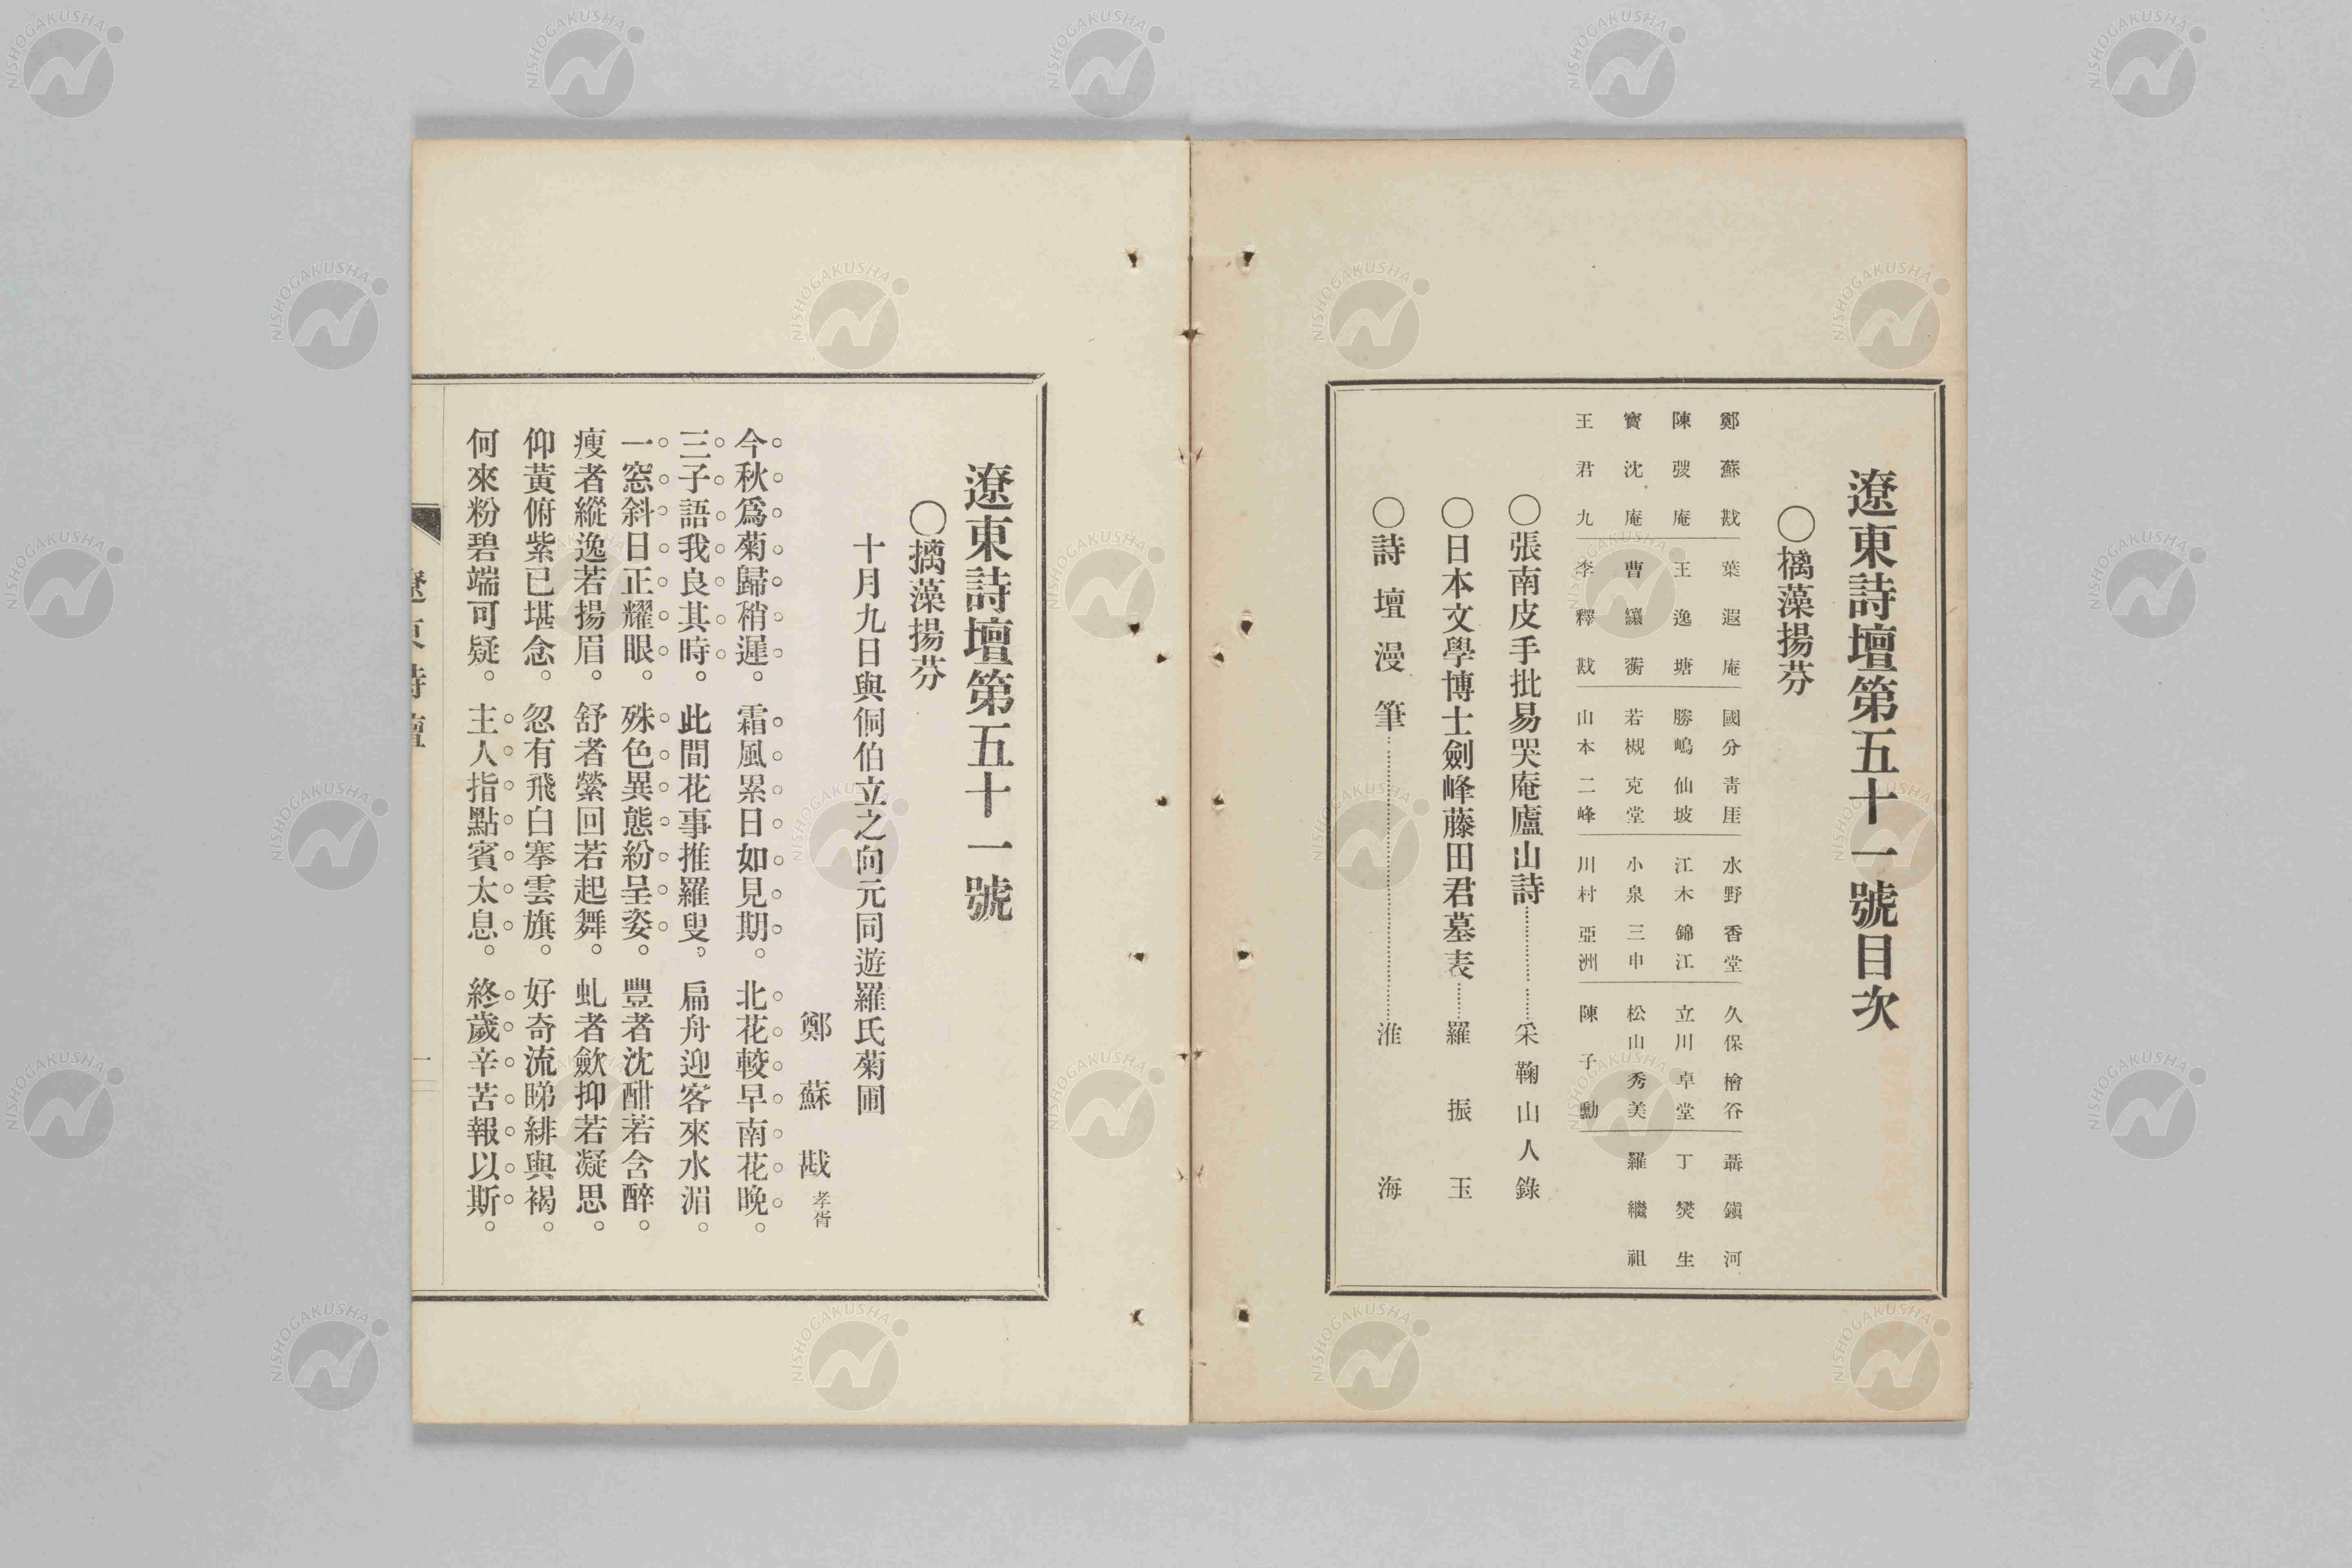 遼東詩壇第五十一號目次
〇樆藻揚芬
鄭蘇戡 葉遐庵 國分青厓 水野香堂 久保檜谷 聶鎭河
陳弢庵 王逸塘 勝嶋仙坡 江木錦江 立川卓堂 丁燮生
寳沈庵 曹纕蘅 若槻克堂 小泉三申 松山秀美 羅繼祖
王君九 李釋戡 山本二峰 川村亞洲 陳子勳
〇張南皮手批易哭庵廬山詩……采鞠山人錄
〇日本文學博士劍峰藤田君墓表……羅振玉
〇詩壇漫筆……淮海
遼東詩壇第五十一號
〇摛藻揚芬
十月九日與侗伯立之向元同遊羅氏菊圃
鄭蘇戡孝胥
今秋爲菊歸稍遲。霜風累日如見期。北花較早南花晚。
三子語我良其時。此間花事推羅叟。扁舟迎客來水湄。
一窓斜日正耀眼。殊色異態紛呈姿。豐者沈酣若含醉。
瘦者縱逸若揚眉。舒者縈回若起舞。虬者歛抑若凝思。
仰黃俯紫已堪念。忽有飛白搴雲旗。好奇流睇緋與褐。
何來粉碧端可疑。主人指點賓太息。終歲辛苦報以斯。
遼東詩壇
一
NISHOGAKUSHA